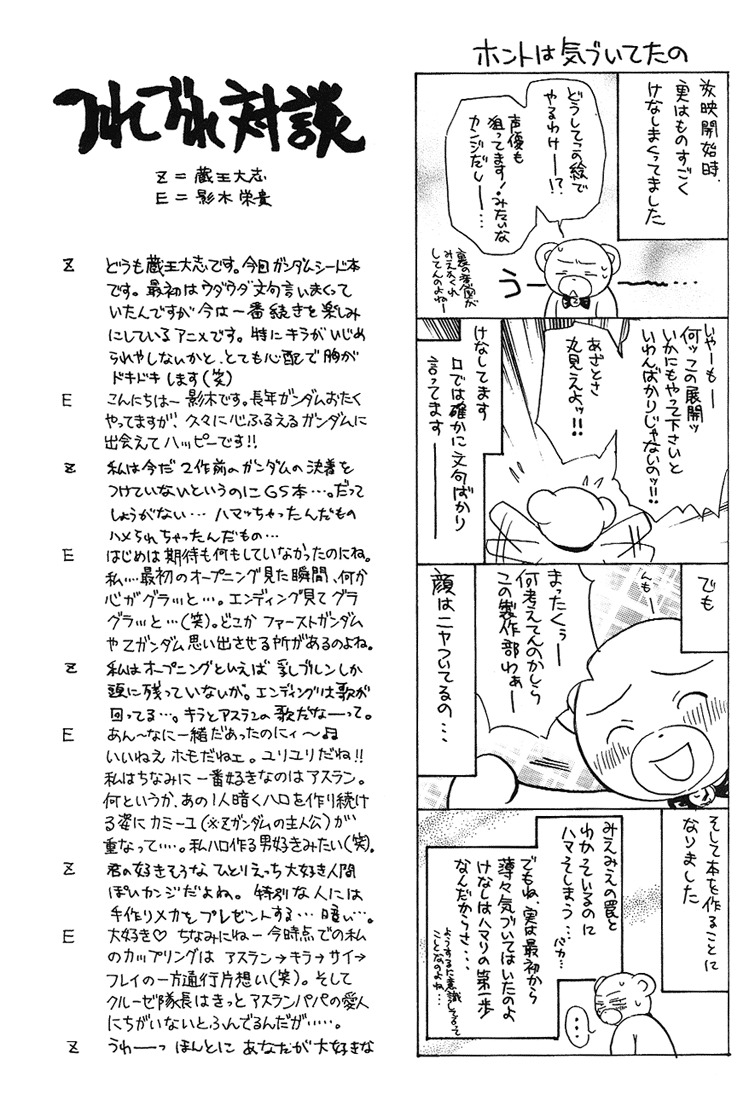 ホントは気づいてたの
放映開始時、
実はものすごく
けなしまくってました
どうしてこの絵で
やるわけー!?
声優も
狙ってます!みたいな
カンジだしー…
う
いやーもー
何ッこの展開ッ
いかにもやって下さいと
いわんばかりじゃないのッ!!
あざとさ
丸見えよッ!!
けなしてます
口では確かに文句ばかり
言ってます――
でも
んもー
まったくぅー
何考えてんのかしら
この製作部わぁー
顔はニヤついてるの…
そして本を作ることに
なりました
みえみえの罠と
わかっているのに
ハマってしまう…
バカ…
でもね、実は最初から
薄々気づいてはいたのよ
けなしはハマりの第一歩
なんだからさ…
ようするに意識してるって
ことなのよね…
…
つれづれ対談
Z=蔵王大志
E=影木栄貴
Z どうも蔵王大志です。今回ガンダムシード本
です。最初はウダウダ文句言いまくって
いたんですが今は一番続きを楽しみ
にしているアニメです。特にキラがいじめ
られやしないかと、とても心配で胸が
ドキドキします(笑)
E こんにちはー影木です。長年ガンダムおたく
やってますが、久々に心ふるえるガンダムに
出会えてハッピーです!!
Z 私は今だ2作前のガンダムの決着を
つけていないというのにGS本…。だって
しょうがない…ハマッちゃったんだもの
ハメられちゃったんだもの…
E はじめは期待も何もしていなかったのにね。
私…最初のオープニング見た瞬間、何か
心がグラッと…。エンディング見てグラ
グラッと…(笑)。どこかファーストガンダム
やZガンダム思い出させる所があるのよね。
Z 私はオープニングといえば乳ブルンしか
頭に残っていないが。エンディングは歌が
回ってる…。キラとアスランの歌だなーって。
E あん〜なに一緒だあったのにィ〜♫
いいねえホモだねェ。ユリユリだね!!
私はちなみに一番好きなのはアスラン。
何というか、あの1人暗くハロを作り続け
る姿にカミーユ(※Zガンダムの主人公)が
重なって…。私ハロ作る男好きみたい(笑).
Z 君の好きそうなひとりえっち大好き人間
ぽいカンジだよね。特別な人には
手作りメカをプレゼントする…暗い…。
E 大好き♡ ちなみにねー今時点での私
のカップリングはアスラン→キラ→サイ→
フレイの一方通行片想い(笑)。そして
クルーゼ隊長はきっとアスランパパの愛人
にちがいないとふんでるんだが……。
Z うわーっほんとにあなたが大好きな